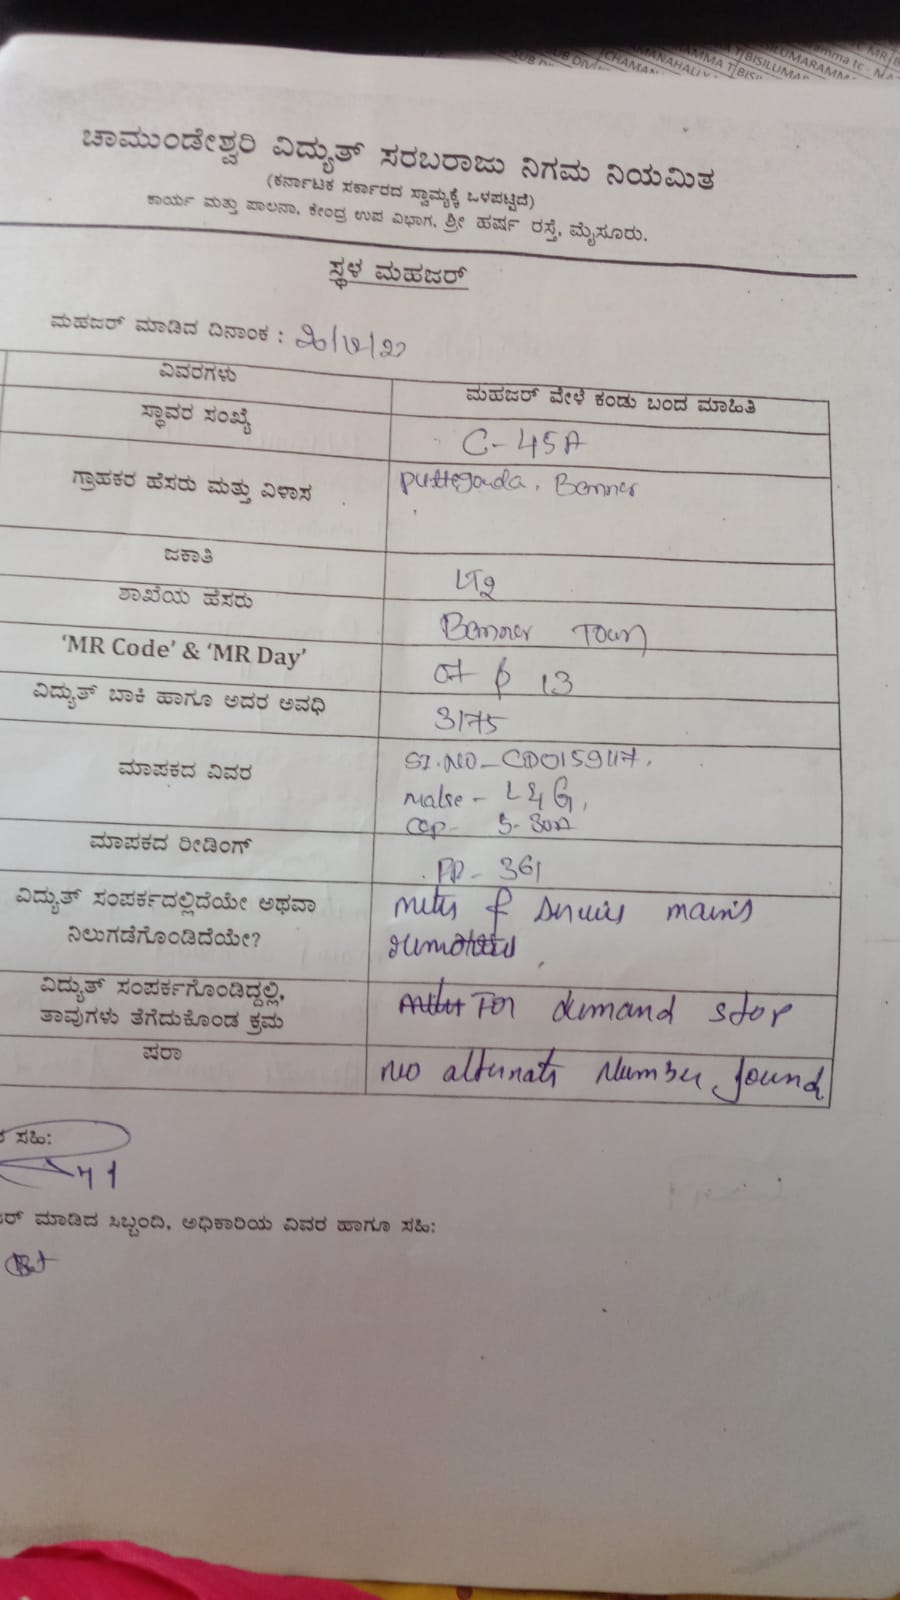 ಚಾಮುಂಡೇಶ್ವರಿ ವಿದ್ಯುತ್ ಸರಬರಾಜು ನಿಗಮ ನಿಯಮಿತ
(ಕರ್ನಾಟಕ ಸರ್ಕಾರದ ಸ್ವಾಮ್ಯಕ್ಕೆ ಒಳಪಟ್ಟಿದೆ)
ಕಾರ್ಯ ಮತ್ತು ಪಾಲನಾ, ಕೇಂದ್ರ ಉಪ ವಿಭಾಗ, ಶ್ರೀ ಹರ್ಷ ರಸ್ತೆ, ಮೈಸೂರು.
ಸ್ಥಳ ಮಹಜರ್
ಮಹಜರ್ ಮಾಡಿದ ದಿನಾಂಕ :
ವಿವರಗಳು ಮಹಜರ್ ವೇಳೆ ಕಂಡು ಬಂದ ಮಾಹಿತಿ
ಸ್ಥಾವರ ಸಂಖ್ಯೆ C-45A
ಗ್ರಾಹಕರ ಹೆಸರು ಮತ್ತು ವಿಳಾಸ puttegowda, Bannur
ಜಕಾತಿ LT2
ಶಾಖೆಯ ಹೆಸರು Bannur Town
'MR Code' & 'MR Day' 13
ವಿದ್ಯುತ್ ಬಾಕಿ ಹಾಗೂ ಅದರ ಅವಧಿ 3175
ಮಾಪಕದ ವಿವರ Sl.NO-
make - L&G,
cap- 5-30A
ಮಾಪಕದ ರೀಡಿಂಗ್ 361
ವಿದ್ಯುತ್ ಸಂಪರ್ಕದಲ್ಲಿದೆಯೇ ಅಥವಾ meter & service mains
ನಿಲುಗಡೆಗೊಂಡಿದೆಯೇ?
ವಿದ್ಯುತ್ ಸಂಪರ್ಕಗೊಂಡಿದ್ದಲ್ಲಿ, For demand stop
ತಾವುಗಳು ತೆಗೆದುಕೊಂಡ ಕ್ರಮ
ಷರಾ No alternate Number found
ಸಹಿ:
ಮಾಡಿದ ಸಿಬ್ಬಂದಿ, ಅಧಿಕಾರಿಯ ವಿವರ ಹಾಗೂ ಸಹಿ: